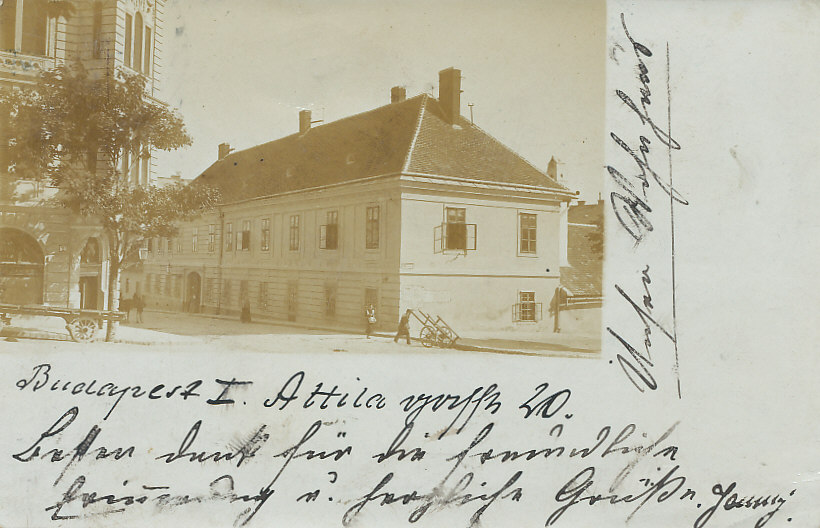 Unser Wohnhaus
Budapest I. Attila gasse 20.
Besten dank für die freundliche
Erinnerung u. herzliche Grüße. Jenny.